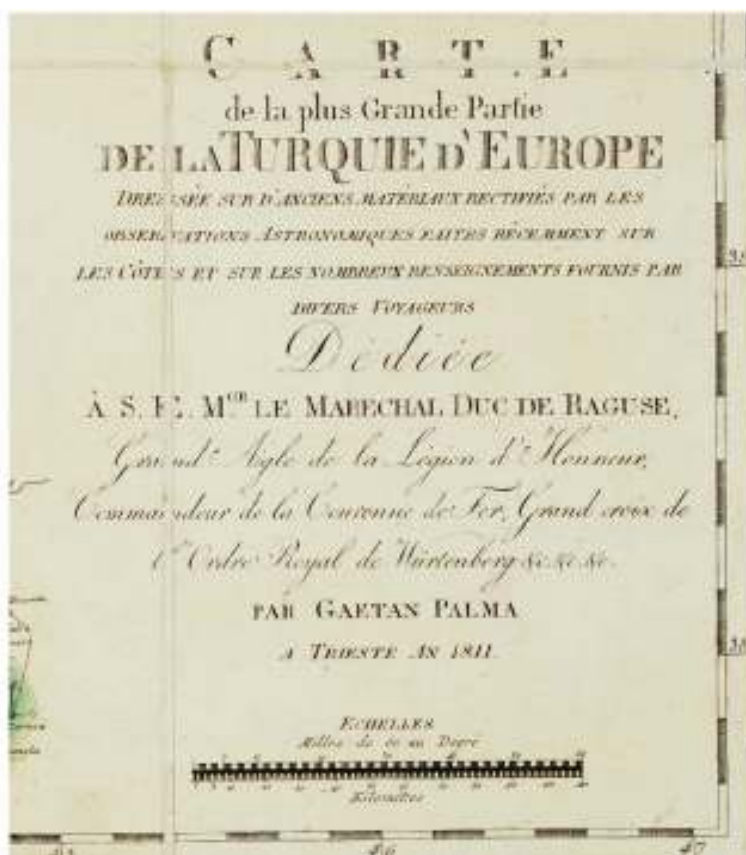 CARTE
de la plus Grande Partie
DE LA TURQUIE D'EUROPE
DRESSÉE SUR D'ANCIENS MATÉRIAUX RECTIFIÉS PAR LES
OBSERVATIONS ASTRONOMIQUES FAITES RÉCEMMENT SUR
LES CÔTES ET SUR LES NOMBREUX RENSEIGNEMENTS FOURNIS PAR
DIVERS VOYAGEURS
Dédiée
À S. E. MGR LE MARECHAL DUC DE RAGUSE,
Grand Aigle de la Légion d'Honneur,
Commandeur de la Couronne de Fer, Grand croix de
l'Ordre Royal de Würtenberg &c. &c. &c.
PAR GAETAN PALMA
A TRIESTE AN 1811.
ECHELLES
Milles de 60 au Degré
Kilomètres
46 47